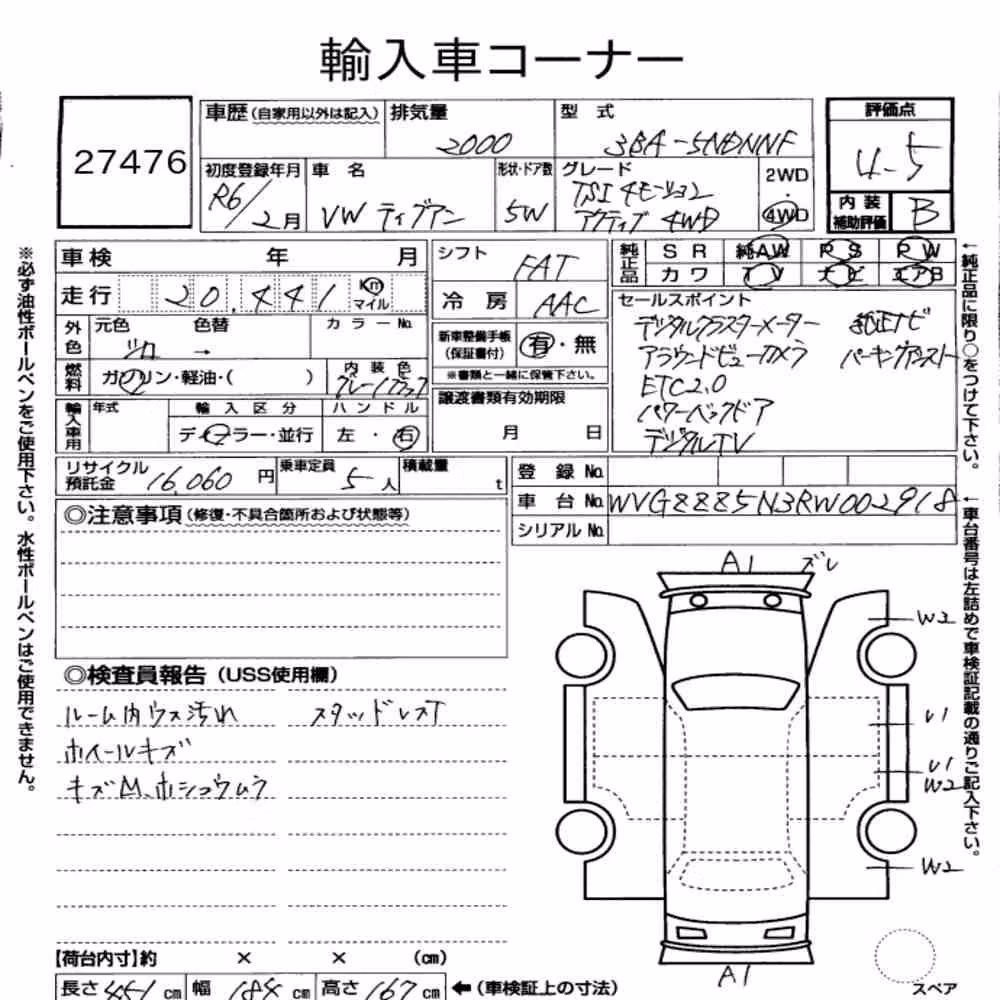 輸入車コーナー
27476
車歴(自家用以外は記入)
排気量
2000
型 式
3BA-5NDNNF
評価点
4-5
初度登録年月
R6/2月
車 名
VW ティグアン
形状・ドア数
5W
グレード
TSI 4モーション
アクティブ 4WD
2WD
・
4WD
内 装
補助評価
B
車検 年 月
シフト
FAT
純正品
S R 純AW P S P W
カ ワ T V ナ ビ エアB
走行 20,441 Km
マイル
冷 房
AAC
セールスポイント
デジタルクラスターメーター 純正ナビ
アラウンドビューカメラ パーキングアシスト
ETC2.0
パワーバックドア
デジタルTV
外色
元色 色替
カラーNo.
→
新車整備手帳
(保証書付)
有・無
※書類と一緒に保管下さい。
燃料
ガソリン・軽油・( )
内 装 色
グレー/ブラック
譲渡書類有効期限
月 日
輸入車用
年式
輸 入 区 分
ディーラー・並行
ハ ン ド ル
左 ・ 右
リサイクル
預託金
16,060 円
乗車定員
5 人
積載量
t
登 録 No.
車 台 No. WVGZZZ5N3RW002918
シリアル No.
◎注意事項(修復・不具合箇所および状態等)
◎検査員報告(USS使用欄)
ルーム内ウス汚れ スタッドレスT
ホイールキズ
キズ凹、ホシュウムラ
A1 ズレ
W2
U1
U1
W2
W2
A1
スペア
【荷台内寸】約 × × (cm)
長さ 451 cm 幅 184 cm 高さ 167 cm ←(車検証上の寸法)
※必ず油性ボールペンをご使用下さい。水性ボールペンはご使用できません。
←純正品に限り○をつけて下さい。
←車台番号は左詰めで車検証記載の通りご記入下さい。